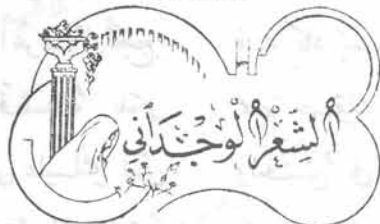 ٱلشِّعْرُ ٱلْوِجْدَانِي